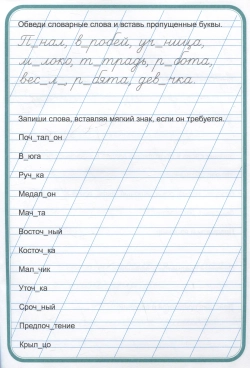 Обведи словарные слова и вставь пропущенные буквы.
П_нал, в_робей, уч_ница,
м_локо, т_традь, р_бота,
вес_л_, р_бята, дев_чка
Запиши слова, вставляя мягкий знак, если он требуется.
Поч_тал_он
В_юга
Руч_ка
Медал_он
Мач_та
Восточ_ный
Косточ_ка
Мал_чик
Уточ_ка
Сроч_ный
Предпоч_тение
Крыл_цо